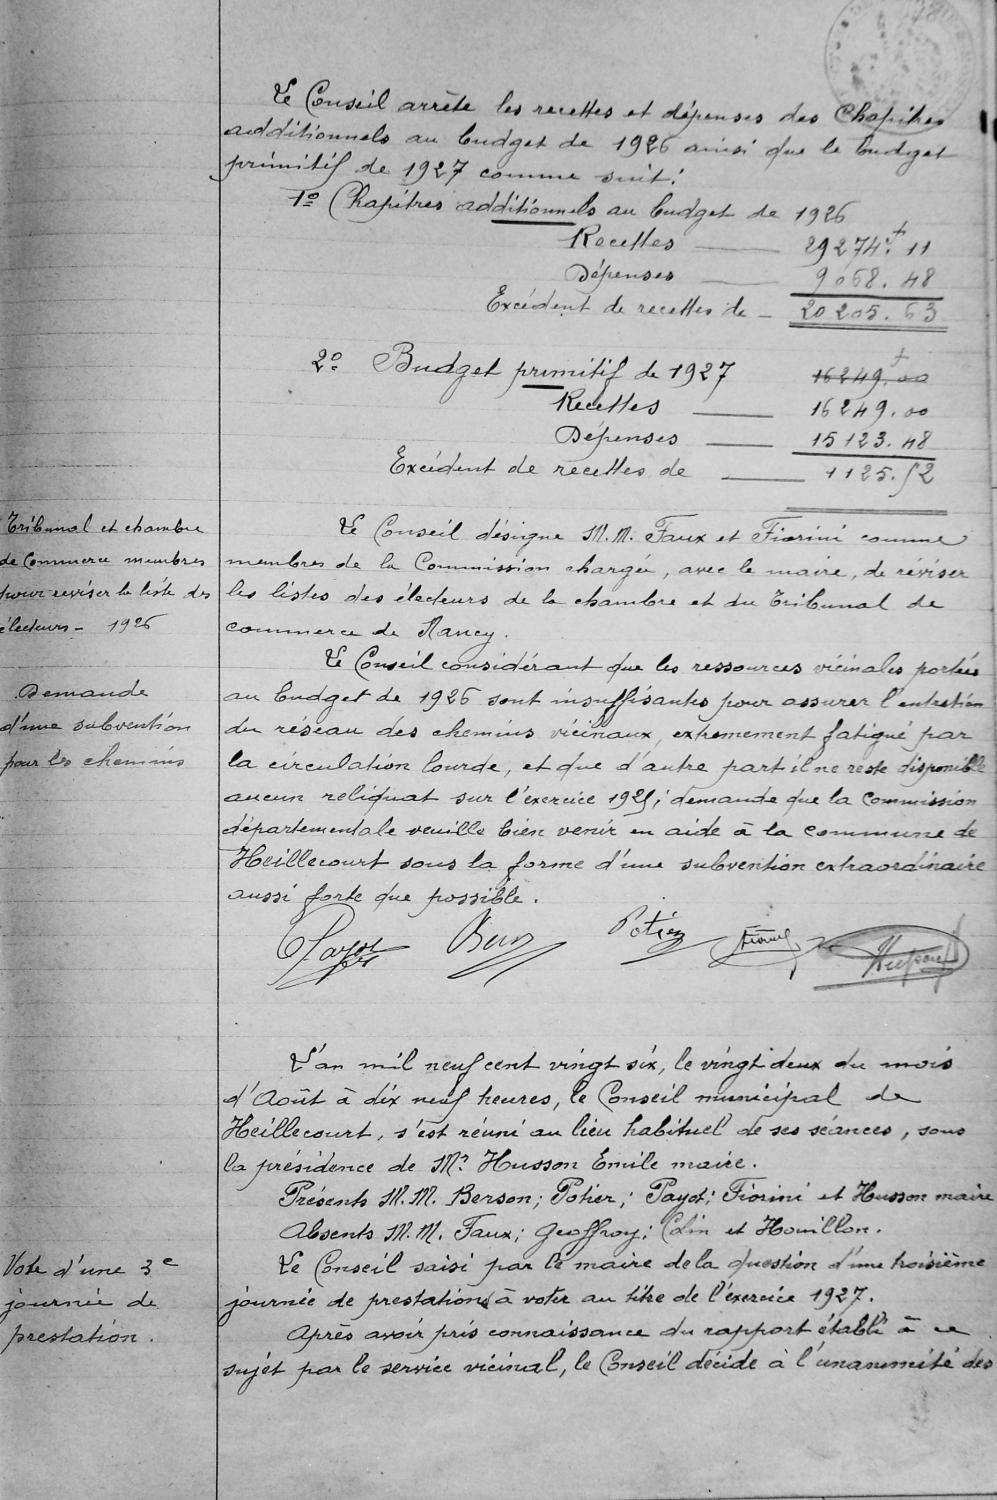 Le Conseil arrête les recettes et dépenses des Chapitres
additionnels au budget de 1926 ainsi que le budget
primitif de 1927 comme suit :
1º Chapitres additionnels au budget de 1926
Recettes — 29274f. 11
Dépenses — 9068. 48
Excédent de recettes de — 20205. 63
2º Budget primitif de 1927 16249. 00
Recettes — 16249. 00
Dépenses — 15123. 48
Excédent de recettes de — 1125. 52
Tribunal et chambre
de Commerce membres
pour reviser la liste des
électeurs - 1926
Le Conseil désigne M.M. Faux et Fiorini comme
membres de la Commission chargée, avec le maire, de réviser
les listes des électeurs de la chambre et du Tribunal de
commerce de Nancy.
Demande
d'une subvention
pour les chemins
Le Conseil considérant que les ressources vicinales portées
au budget de 1926 sont insuffisantes pour assurer l'entretien
du réseau des chemins vicinaux, extremement fatigué par
la circulation lourde, et que d'autre part il ne reste disponible
aucun reliquat sur l'exercice 1925; demande que la Commission
départementale veuille bien venir en aide à la commune de
Heillecourt sous la forme d'une subvention extraordinaire
aussi forte que possible.
Payot Potier Fiorini Husson
L'an mil neuf cent vingt six, le vingt deux du mois
d'Août à dix neuf heures, le Conseil municipal de
Heillecourt, s'est réuni au lieu habituel de ses séances, sous
la présidence de Mr Husson Emile maire.
Présents M.M. Berson; Potier; Payot; Fiorini et Husson maire
Absents M.M. Faux; Geoffroy; Colin et Houillon.
Vote d'une 3e
journée de
prestation.
Le Conseil saisi par le maire de la question d'une troisième
journée de prestations à voter au titre de l'exercice 1927.
Après avoir pris connaissance du rapport établi à ce
sujet par le service vicinal, le Conseil décide à l'unanimité des